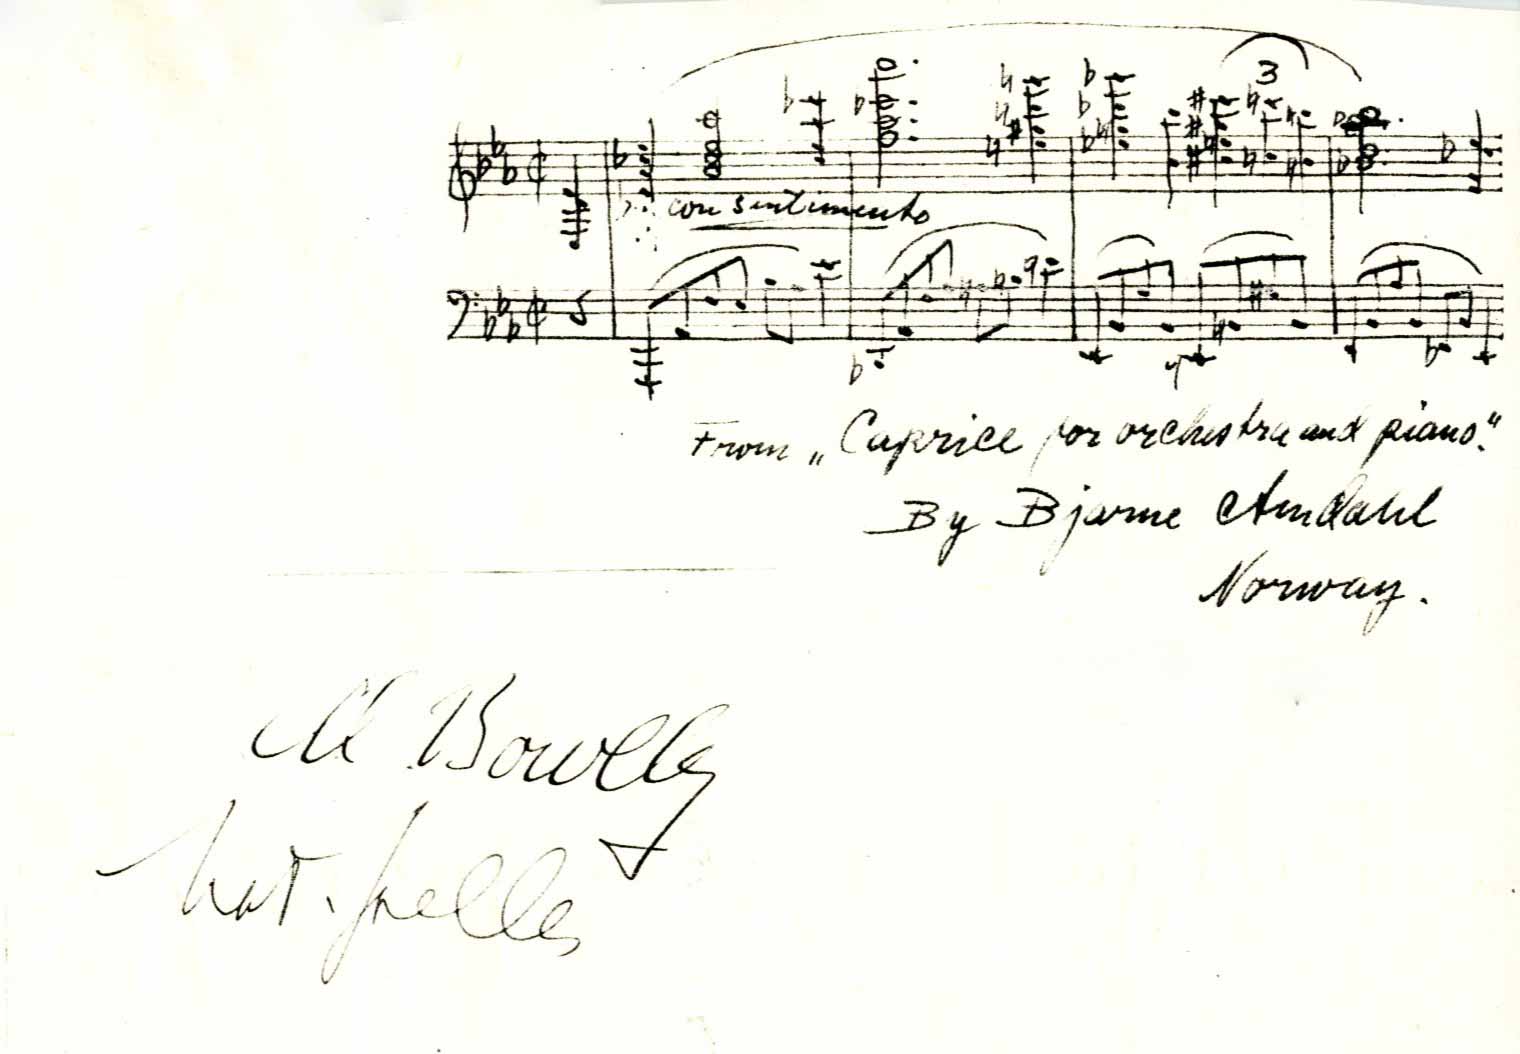 3
con sentimento
From „Caprice for orchestra and piano."
By Bjarne Amdahl
Norway.
Al Bowlly
Nat.